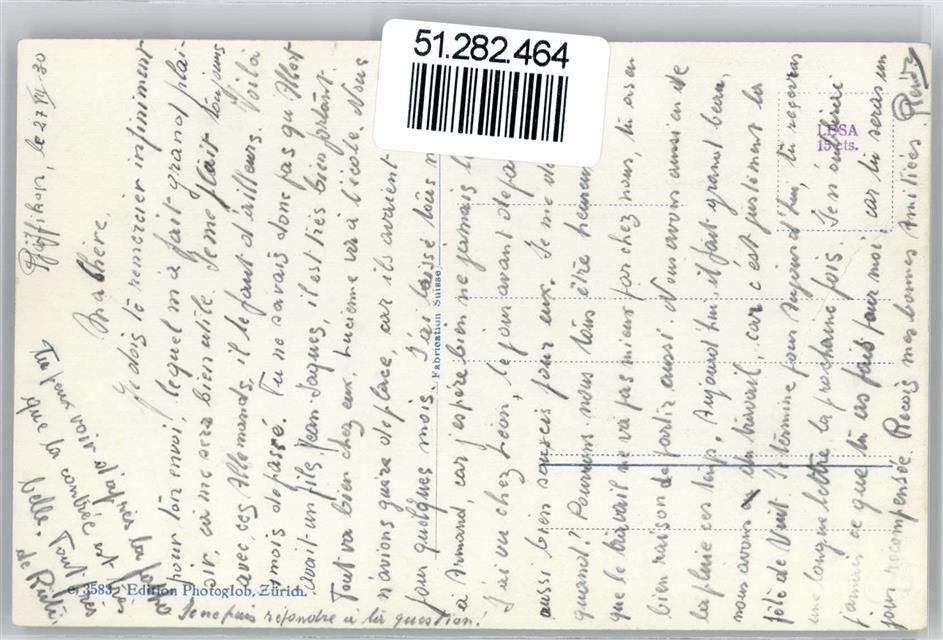 51.282.464
Pfäffikon, le 27 VII 30
Ma chère,
Je dois te remercier infiniment
pour ton envoi, lequel m'a fait grand plai-
sir, ça me sera bien utile. Je me plait toujours
avec ces Allemands, il le faut d'ailleurs. Voilà
1 mois de passé. Tu ne savais donc pas qu'Albert
avait un fils, Jean-Jaques, il est très bien portant.
Tout va bien chez eux, Lucienne va à l'école. Nous
n'avions guère de place, car ils avaient
pour quelques mois. J'ai laissé tous
à Armand, car j'espère bien ne jamais
J'ai vu chez Léon, le jour avant de
aussi bien pour eux. Je me
quand? Pourrons nous tous être heureux
que le travail ne va pas mieux par chez nous, tu as eu
bien raison de partir aussi. Nous avons aussi eu de
la pluie ces temps. Aujourd'hui, il fait grand beau,
nous avons du travail, car c'est justement la
fête de nuit. Je termine pour aujourd'hui, tu recevras
une longue lettre la prochaine fois. Je n'oublierai
jamais ce que tu as fais pour moi car tu seras un
jour récompensée. Reçois mes bonnes amitiées
Tu peux voir d'après la photo
que la contrée est très
belle. Tout près
de Rüti.
Je ne puis répondre à ta question!
c. 3583. Edition Photoglob, Zürich.
Fabrication Suisse
15 cts.